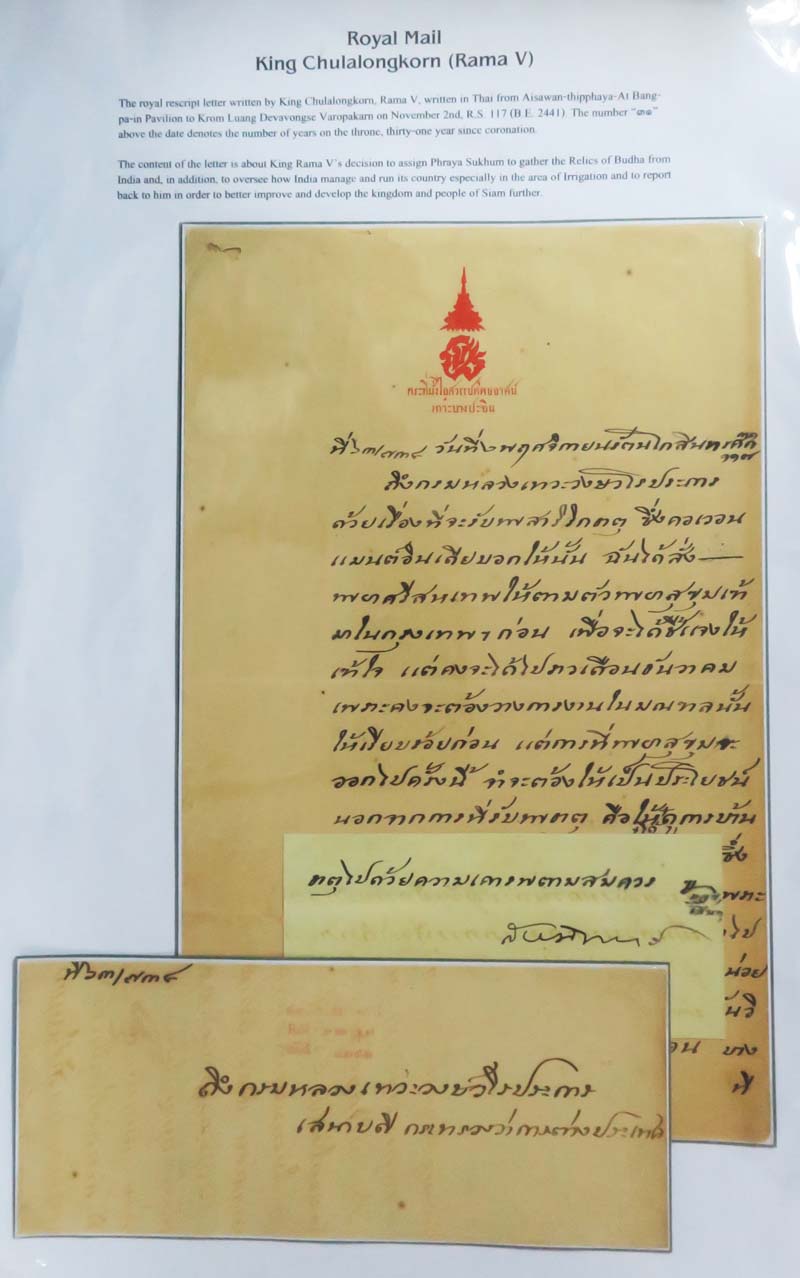 Royal Mail
King Chulalongkorn (Rama V)
The royal rescript letter written by King Chulalongkorn, Rama V, written in Thai from Aisawan-thipphaya-At Bang-
pa-in Pavilion to Krom Luang Devavongse Varopakarn on November 2nd, R.S. 117 (B.E. 2441). The number "๓๑"
above the date denotes the number of years on the throne, thirty-one year since coronation.
The content of the letter is about King Rama V's decision to assign Phraya Sukhum to gather the Relics of Budha from
India and, in addition, to oversee how India manage and run its country especially in the area of Irrigation and to report
back to him in order to better improve and develop the kingdom and people of Siam further.
พระที่นั่งไอสวรรยทิพยอาศน์
เกาะบางปะอิน
ที่ ๖๓/๗๓๔ วันที่ ๒ พฤศจิกายน รัตนโกสินทรศก
๑๑๗
ถึง กรมหลวงเทวะวงษวโรประการ
ด้วยเรื่องที่จะรับพระสารีริกธาตุ ซึ่งคอเวอน
แมนต์อินเดียบอกให้นั้น ฉันได้สั่ง
พระยาศรีสหเทพให้ตามตัวพระยาสุขุมเข้า
มาในกรุงเทพฯ ก่อน เพื่อจะได้ชี้แจงให้
เข้าใจ แต่คงจะได้ไปราวเดือนธันวาคม
เพราะคงจะต้องวางการงานในมณฑลนั้น
ให้เรียบร้อยก่อน แต่การที่พระยาสุขุมจะ
ออกไปครั้งนี้ จำจะต้องให้เป็นประโยชน์
นอกจากการที่รับพระธาตุ คือให้ดูการบ้าน
ซึ่ง
ธาตุไปด้วยความเคารพตามสมควร
พระ
ไป
หน่อย
บาง
ที่ ๖๓/๗๓๔
ถึง กรมหลวงเทวะวงษวโรประการ
เสนาบดี กระทรวงว่าการต่างประเทศ